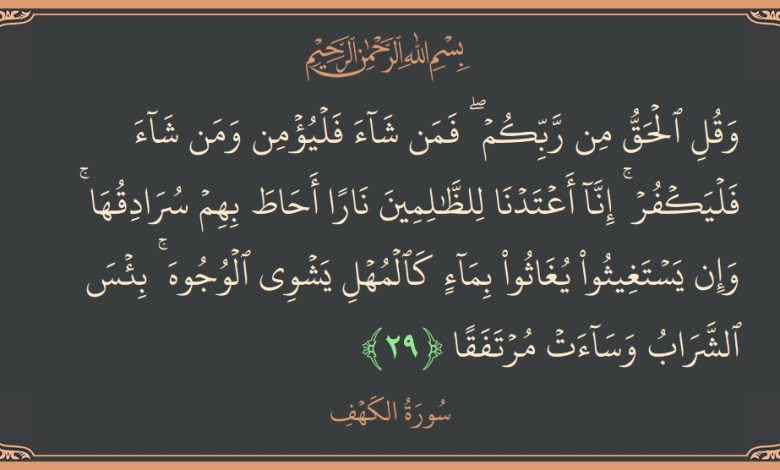 بِسۡمِ ٱللَّهِ ٱلرَّحۡمَٰنِ ٱلرَّحِيمِ
وَقُلِ ٱلۡحَقُّ مِن رَّبِّكُمۡۖ فَمَن شَآءَ فَلۡيُؤۡمِن وَمَن شَآءَ
فَلۡيَكۡفُرۡۚ إِنَّآ أَعۡتَدۡنَا لِلظَّٰلِمِينَ نَارًا أَحَاطَ بِهِمۡ سُرَادِقُهَاۚ
وَإِن يَسۡتَغِيثُواْ يُغَاثُواْ بِمَآءٍ كَٱلۡمُهۡلِ يَشۡوِى ٱلۡوُجُوهَۚ بِئۡسَ
ٱلشَّرَابُ وَسَآءَتۡ مُرۡتَفَقًا ﴿٢٩﴾
سُورَةُ الكَهۡفِ